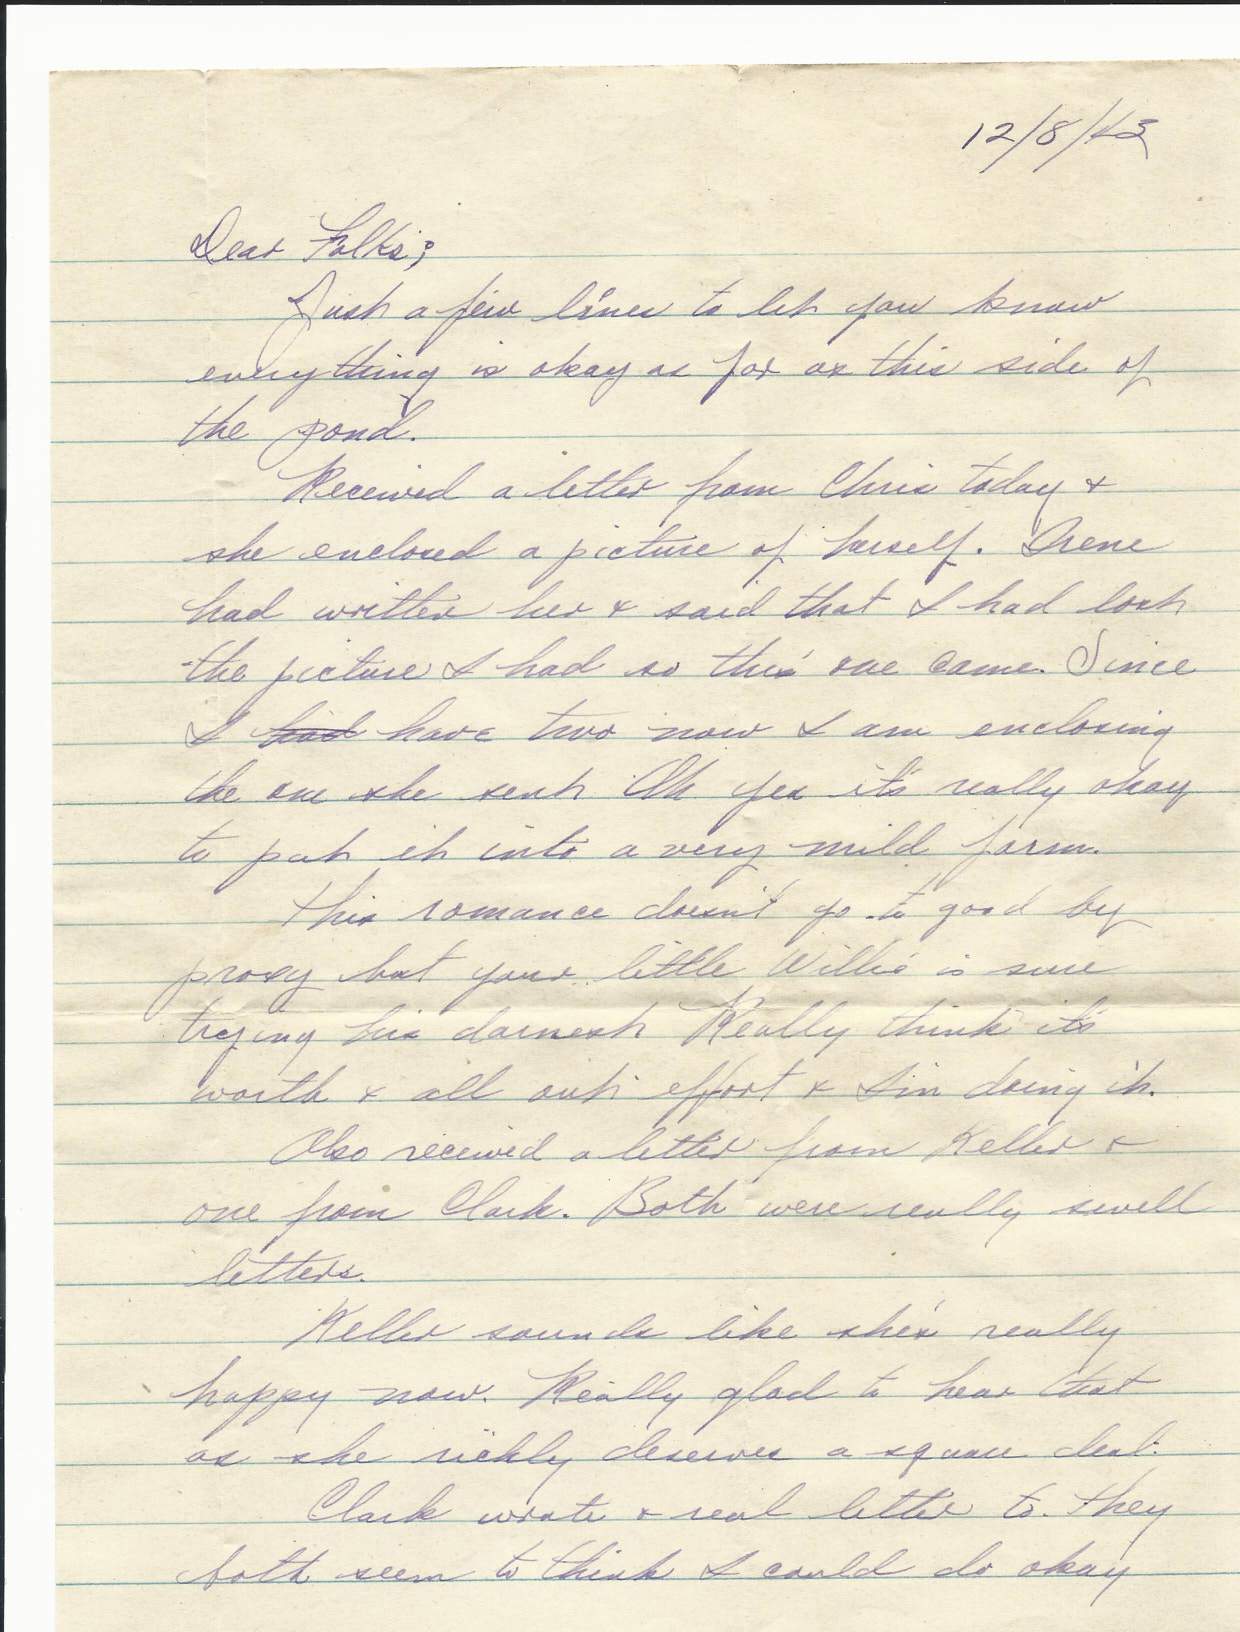 12/8/43
Dear Folks;
Just a few lines to let you know
everything is okay as far as this side of
the pond.
Received a letter from Chris today &
she enclosed a picture of herself. Irene
had written her & said that I had lost
the picture I had so this one came. Since
I had have two now I am enclosing
the one she sent. Oh yes it's really okay
to put it into a very mild form.
This romance doesn't go to good by
proxy but your little Willie is sure
trying his darnest. Really think it's
worth & all out effort & I'm doing it.
Also received a letter from Keller &
one from Clark. Both were really swell
letters.
Keller sounds like she's really
happy now. Really glad to hear that
as she richly deserves a square deal.
Clark wrote a real letter to. They
both seem to think I could do okay